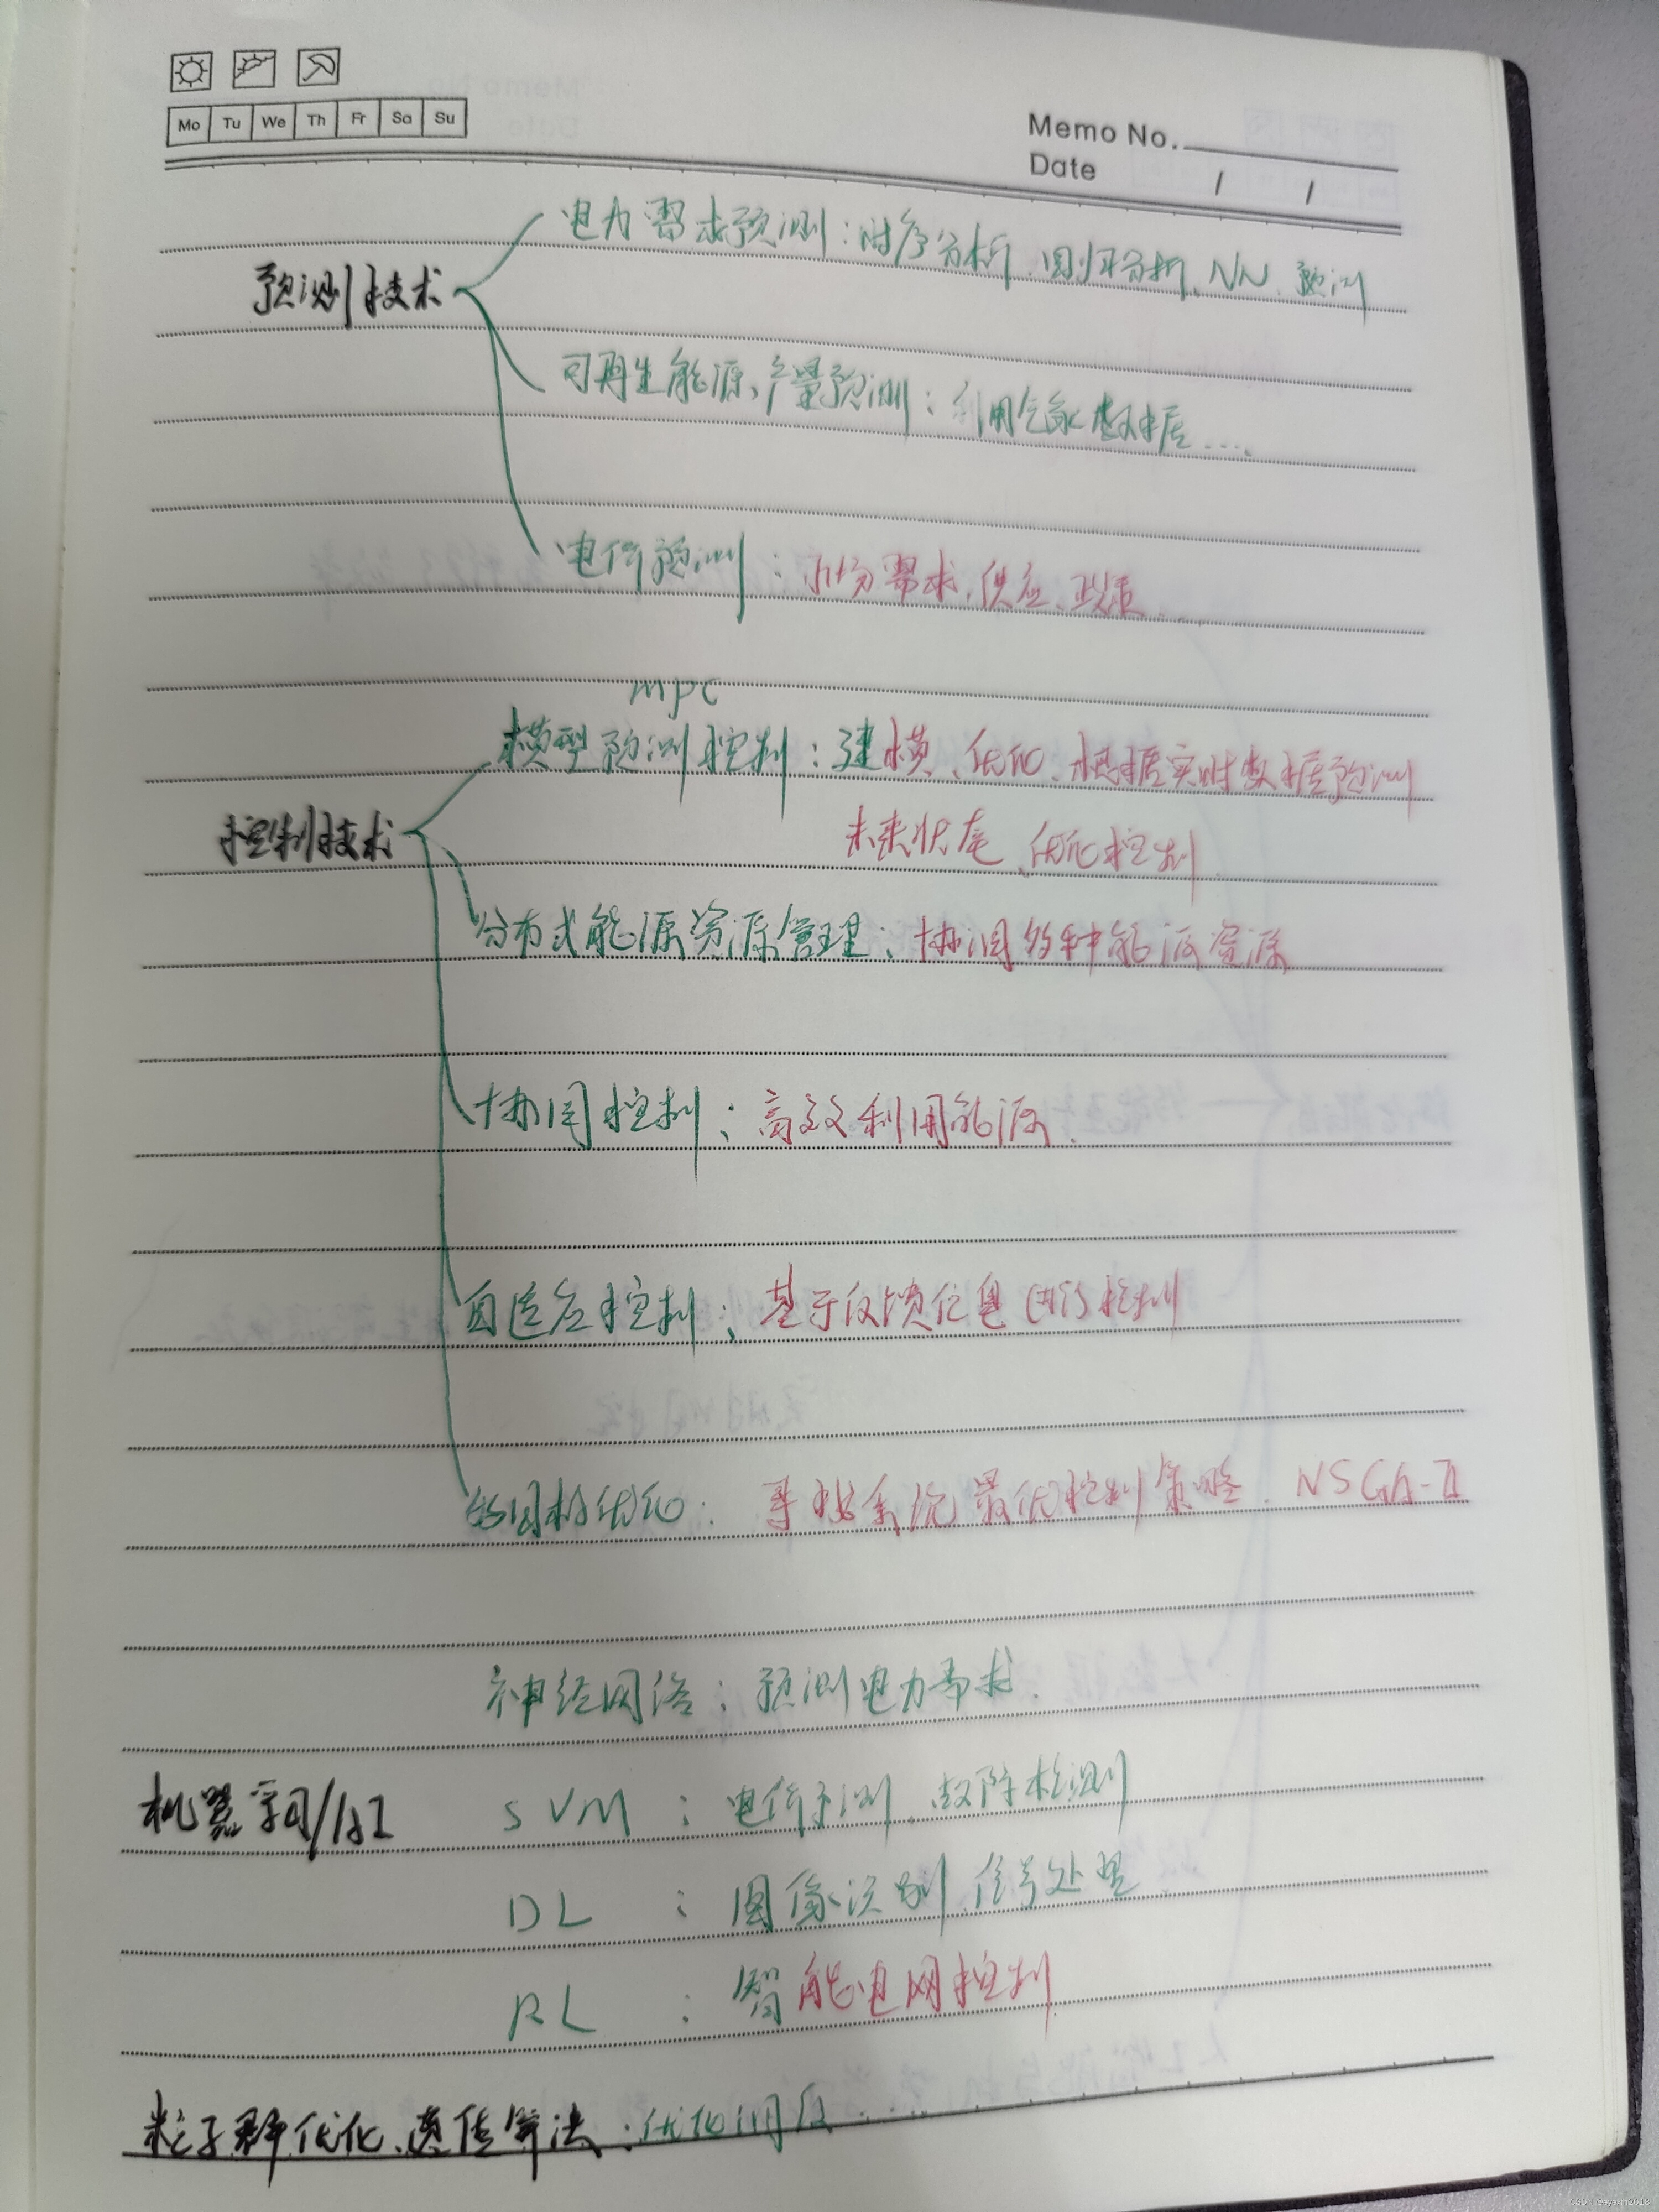 Mo Tu We Th Fr Sa Su
Memo No.
Date / /
电力需求预测：时序分析、回归分析、NN、预测
预测技术
可再生能源、产量预测：利用气象数据....
电价预测：市场需求、供应、政策
mpc
模型预测控制：建模、优化、根据实时数据预测
控制技术
未来状态、优化控制
分布式能源资源管理：协调多种能源资源
协同控制：高效利用能源
自适应控制：基于反馈信息进行控制
多目标优化：寻找系统最优控制策略、NSGA-II
神经网络：预测电力需求
机器学习/AI
SVM：电价预测、故障检测
DL：图像识别、信号处理
RL：智能电网控制
粒子群优化、遗传算法：优化调度.....
CSDN @eyexin2018